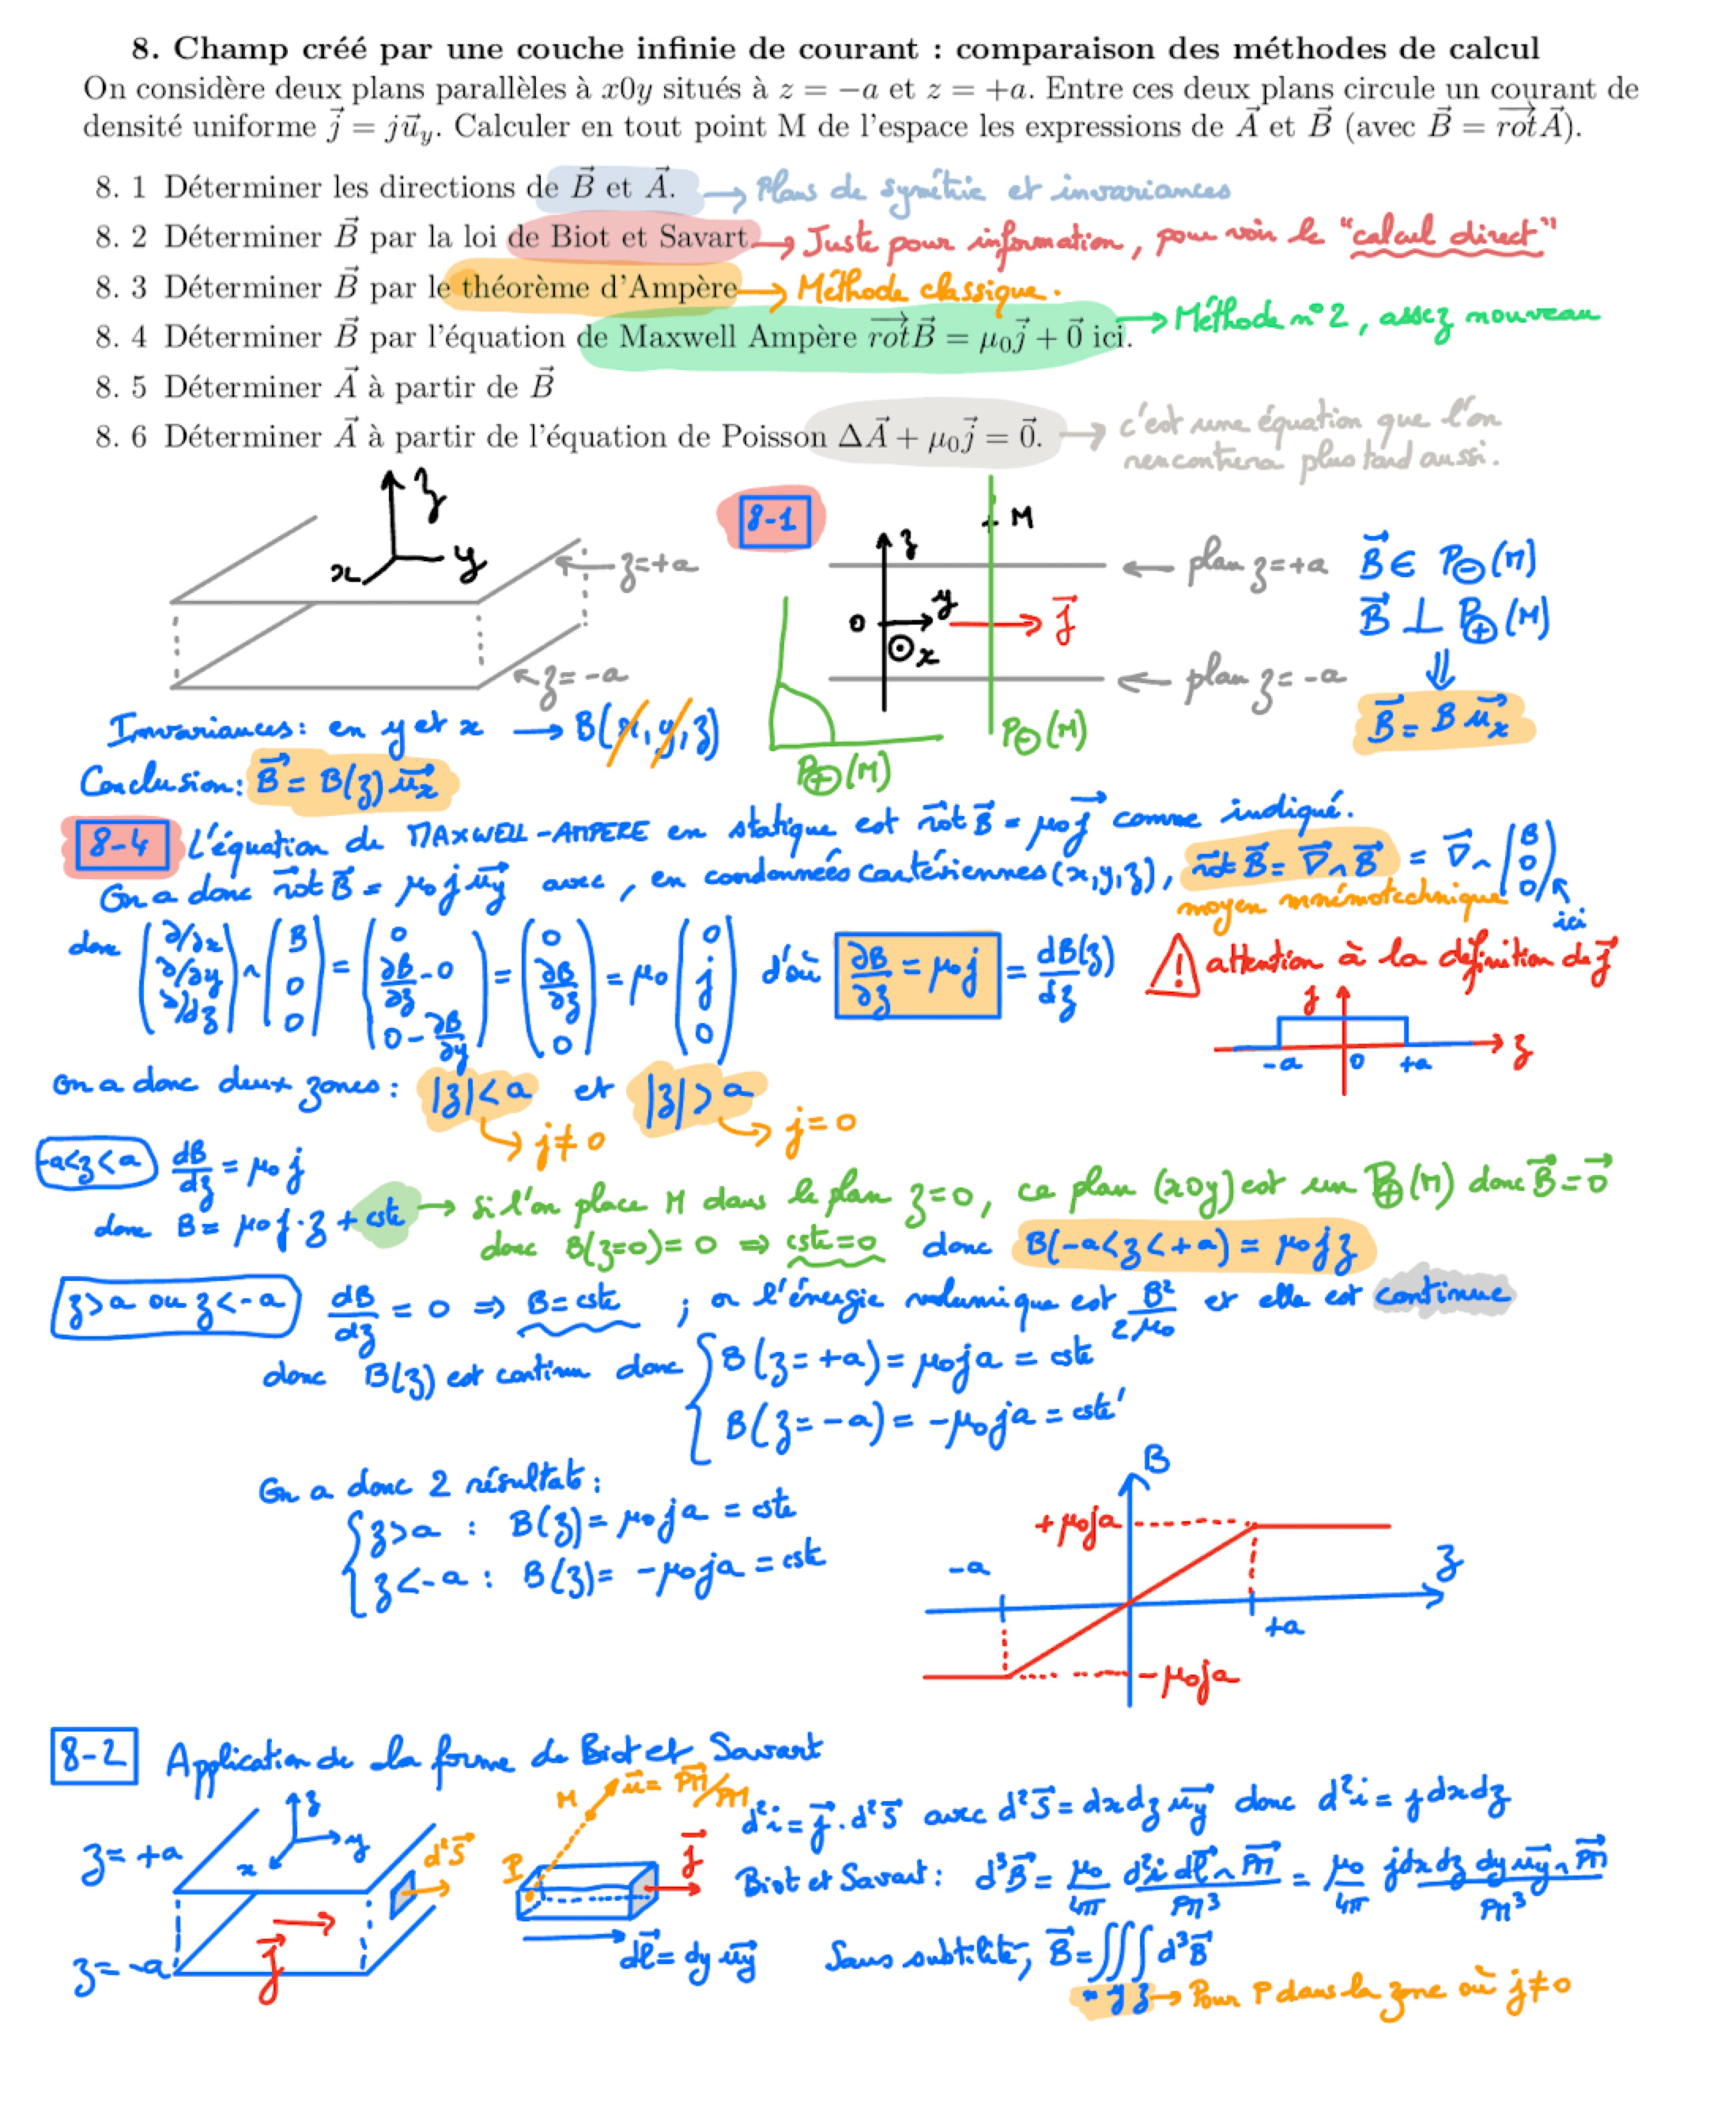 8. Champ créé par une couche infinie de courant : comparaison des méthodes de calcul
On considère deux plans parallèles à x0y situés à z = −a et z = +a. Entre ces deux plans circule un courant de
densité uniforme j⃗ = ju⃗_y. Calculer en tout point M de l'espace les expressions de A⃗ et B⃗ (avec B⃗ = rot⃗ A⃗).
8. 1 Déterminer les directions de B⃗ et A⃗. → Plans de symétrie et invariances
8. 2 Déterminer B⃗ par la loi de Biot et Savart → Juste pour information, pour voir le "calcul direct"
8. 3 Déterminer B⃗ par le théorème d'Ampère → Méthode classique.
8. 4 Déterminer B⃗ par l'équation de Maxwell Ampère rot⃗ B⃗ = μ₀j⃗ + 0⃗ ici. → Méthode n°2, assez nouveau
8. 5 Déterminer A⃗ à partir de B⃗
8. 6 Déterminer A⃗ à partir de l'équation de Poisson ΔA⃗ + μ₀j⃗ = 0⃗. → c'est une équation que l'on
rencontrera plus tard aussi.
z
x
y
z=+a
z=-a
8-1
M
z
y
0
x
j⃗
← plan z=+a
← plan z=-a
P⊖(M)
P⊕(M)
B⃗ ∈ P⊖(M)
B⃗ ⊥ P⊕(M)
⇓
B⃗ = B u⃗x
Invariances: en y et x → B(x, y, z)
Conclusion: B⃗ = B(z) u⃗x
8-4 L'équation de MAXWELL-AMPERE en statique est rot⃗ B⃗ = μ₀j⃗ comme indiqué.
On a donc rot⃗ B⃗ = μ₀ j u⃗y avec, en coordonnées cartésiennes (x,y,z), rot⃗ B⃗ = ∇⃗ ∧ B⃗ = ∇⃗ ∧ (B 0 0)
moyen mnémotechnique
ici
donc (∂/∂x ∂/∂y ∂/∂z) ∧ (B 0 0) = (0 ∂B/∂z - 0 0 - ∂B/∂y) = (0 ∂B/∂z 0) = μ₀ (0 j 0) d'où ∂B/∂z = μ₀j = dB(z)/dz
! attention à la définition de j⃗
j
-a 0 +a z
On a donc deux zones: |z|<a et |z|>a
→ j≠0
→ j=0
-a<z<a dB/dz = μ₀ j
donc B = μ₀ j·z + cste → si l'on place M dans le plan z=0, ce plan (xOy) est un P⊕(M) donc B⃗=0⃗
donc B(z=0)=0 ⇒ cste=0 donc B(-a<z<+a) = μ₀ j z
z>a ou z<-a dB/dz = 0 ⇒ B=cste ; or l'énergie volumique est B²/2μ₀ et elle est continue
donc B(z) est continu donc { B(z=+a) = μ₀ja = cste
B(z=-a) = -μ₀ja = cste'
On a donc 2 résultats:
{ z>a : B(z) = μ₀ja = cste
z<-a : B(z) = -μ₀ja = cste
B
+μ₀ja
-a
z
+a
-μ₀ja
8-2 Application de la forme de Biot et Savart
z=+a
z
y
x
d²S⃗
j⃗
z=-a
M
u⃗ = PM⃗/PM
P
j⃗
dℓ⃗ = dy u⃗y
d²i = j⃗ . d²S⃗ avec d²S⃗ = dx dz u⃗y donc d²i = j dx dz
Biot et Savart: d³B⃗ = μ₀/4π d²i dℓ⃗ ∧ PM⃗/PM³ = μ₀/4π j dx dz dy u⃗y ∧ PM⃗/PM³
Sans subtilité, B⃗ = ∭ d³B⃗
x y z → Pour P dans la zone où j≠0